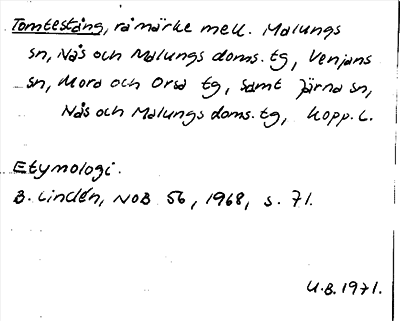 Tomtestång, råmärke mell. Malungs
sn, Nås och Malungs doms. tg, Venjans
sn, Mora och Orsa tg, samt Järna sn,
Nås och Malungs doms. tg, Kopp. L.
Etymologi.
B. Lindén, NOB 56, 1968, s. 71.
U.B. 1971.